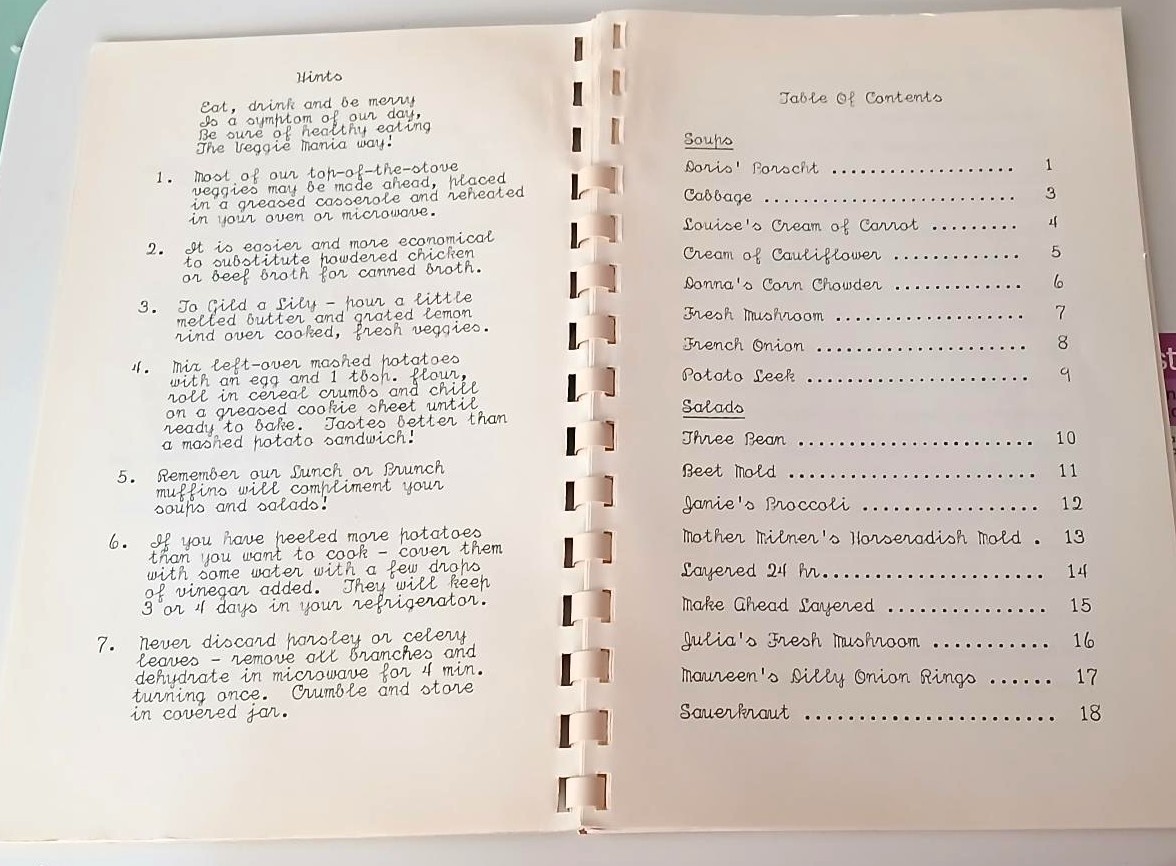 Hints
Eat, drink and be merry
Is a symptom of our day,
Be sure of healthy eating
The Veggie Mania way!
1. Most of our top-of-the-stove
veggies may be made ahead, placed
in a greased casserole and reheated
in your oven or microwave.
2. It is easier and more economical
to substitute powdered chicken
or beef broth for canned broth.
3. To Gild a Lily - pour a little
melted butter and grated lemon
rind over cooked, fresh veggies.
4. Mix left-over mashed potatoes
with an egg and 1 tbsp. flour,
roll in cereal crumbs and chill
on a greased cookie sheet until
ready to bake. Tastes better than
a mashed potato sandwich!
5. Remember our Lunch or Brunch
muffins will compliment your
soups and salads!
6. If you have peeled more potatoes
than you want to cook - cover them
with some water with a few drops
of vinegar added. They will keep
3 or 4 days in your refrigerator.
7. Never discard parsley or celery
leaves - remove all branches and
dehydrate in microwave for 4 min.
turning once. Crumble and store
in covered jar.
Table Of Contents
Soups
Doris' Borscht ................... 1
Cabbage .......................... 3
Louise's Cream of Carrot ......... 4
Cream of Cauliflower ............. 5
Donna's Corn Chowder ............. 6
Fresh Mushroom ................... 7
French Onion ...................... 8
Potato Leek ....................... 9
Salads
Three Bean ........................ 10
Beet Mold ......................... 11
Janie's Broccoli .................. 12
Mother Milner's Horseradish Mold . 13
Layered 24 hr...................... 14
Make Ahead Layered ................ 15
Julia's Fresh Mushroom ........... 16
Maureen's Dilly Onion Rings ...... 17
Sauerkraut ........................ 18